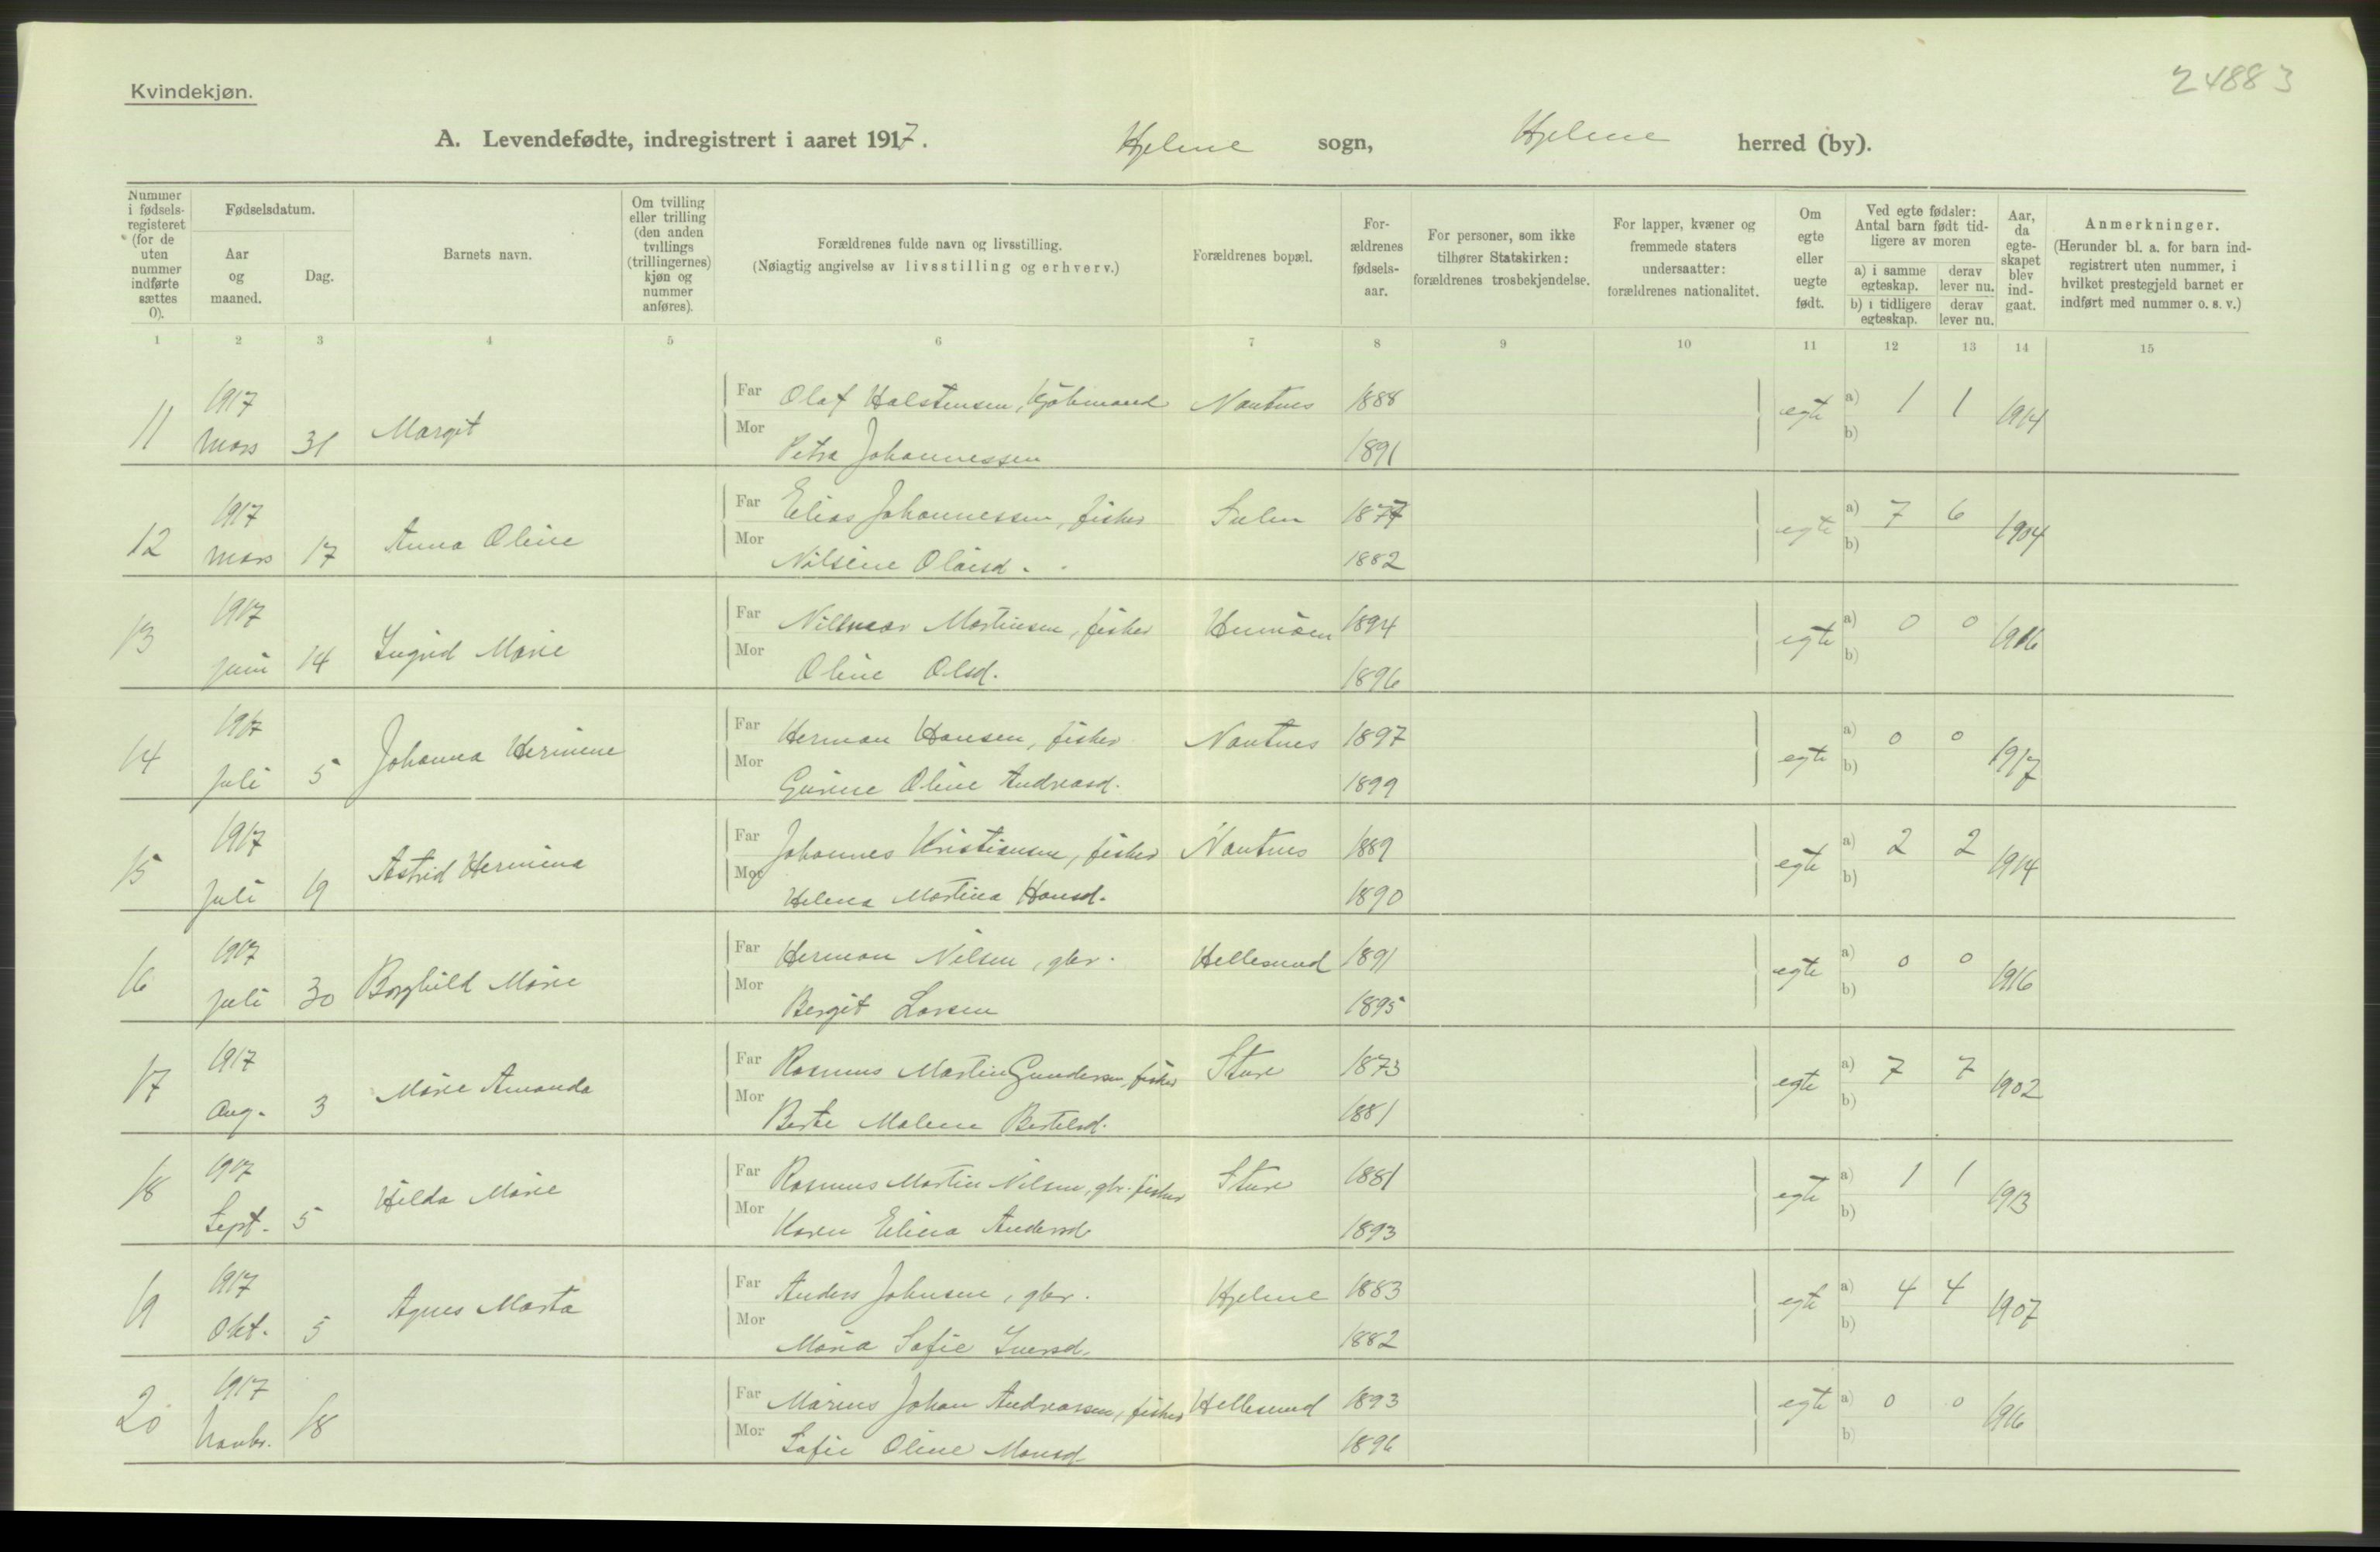 24883
Kvindekjøn.
A. Levendefødte, indregistrert i aaret 1917. Hjelme sogn, Hjelme herred (by).
Nummer i fødsels-registeret (for de uten nummer indførte sættes 0).
Fødselsdatum.
Aar og maaned.
Dag.
Barnets navn.
Om tvilling eller trilling (den anden tvillings (trillingernes) kjøn og nummer anføres).
Forældrenes fulde navn og livsstilling.
(Nøiagtig angivelse av livsstilling og erhverv.)
Forældrenes bopæl.
For-ældrenes fødsels-aar.
For personer, som ikke tilhører Statskirken: forældrenes trosbekjendelse.
For lapper, kvæner og fremmede staters undersaatter: forældrenes nationalitet.
Om egte eller uegte født.
Ved egte fødsler: Antal barn født tid-ligere av moren
a) i samme egteskap.
derav lever nu.
b) i tidligere egteskap.
derav lever nu.
Aar, da egte-skapet blev ind-gaat.
Anmerkninger.
(Herunder bl. a. for barn ind-registrert uten nummer, i hvilket prestegjeld barnet er indført med nummer o. s. v.)
1 2 3 4 5 6 7 8 9 10 11 12 13 14 15
11 1917 Mars 31 Margit Far Olaf Halstensen, Kjøbmand Nautnes 1888 egte a) 1 1 1914
Mor Petra Johannessen 1891 b)
12 1917 Mars 17 Anna Oline Far Elias Johannessen, fisker Sulen 1877 egte a) 7 6 1904
Mor Nilsine Olaisd. 1882 b)
13 1917 Juni 14 Ingrid Marie Far Martinsen, fisker 1894 egte a) 0 0 1916
Mor Oline Olsd. 1896 b)
14 1917 Juli 5 Johanna Hermine Far Herman Hansen, fisker Nautnes 1897 egte a) 0 0 1917
Mor Gurine Oline Andreasd. 1899 b)
15 1917 Juli 19 Astrid Hermina Far Johannes Kristiansen, fisker Nautnes 1889 egte a) 2 2 1914
Mor Helena Martina Hansd. 1890 b)
16 1917 Juli 30 Borghild Marie Far Herman Nilsen, gbr. Hellesund 1891 egte a) 0 0 1916
Mor Bergit Larsen 1895 b)
17 1917 Aug. 3 Marie Amanda Far Rasmus Martin Gundersen, fisker Sture 1873 egte a) 7 7 1902
Mor Berte Malene Bertelsd. 1881 b)
18 1917 Sept. 5 Hilda Marie Far Rasmus Martin Nilsen, gbr. fisker Sture 1881 egte a) 1 1 1913
Mor Karen Elina Andersd. 1893 b)
19 1917 Okt. 5 Agnes Marta Far Anders Johnsen, gbr. Hjelme 1883 egte a) 4 4 1907
Mor Maria Sofie Iversd. 1882 b)
20 1917 Novbr. 18 Far Marius Johan Andreassen, fisker Hellesund 1893 egte a) 0 0 1916
Mor Sofie Oline Monsd. 1896 b)